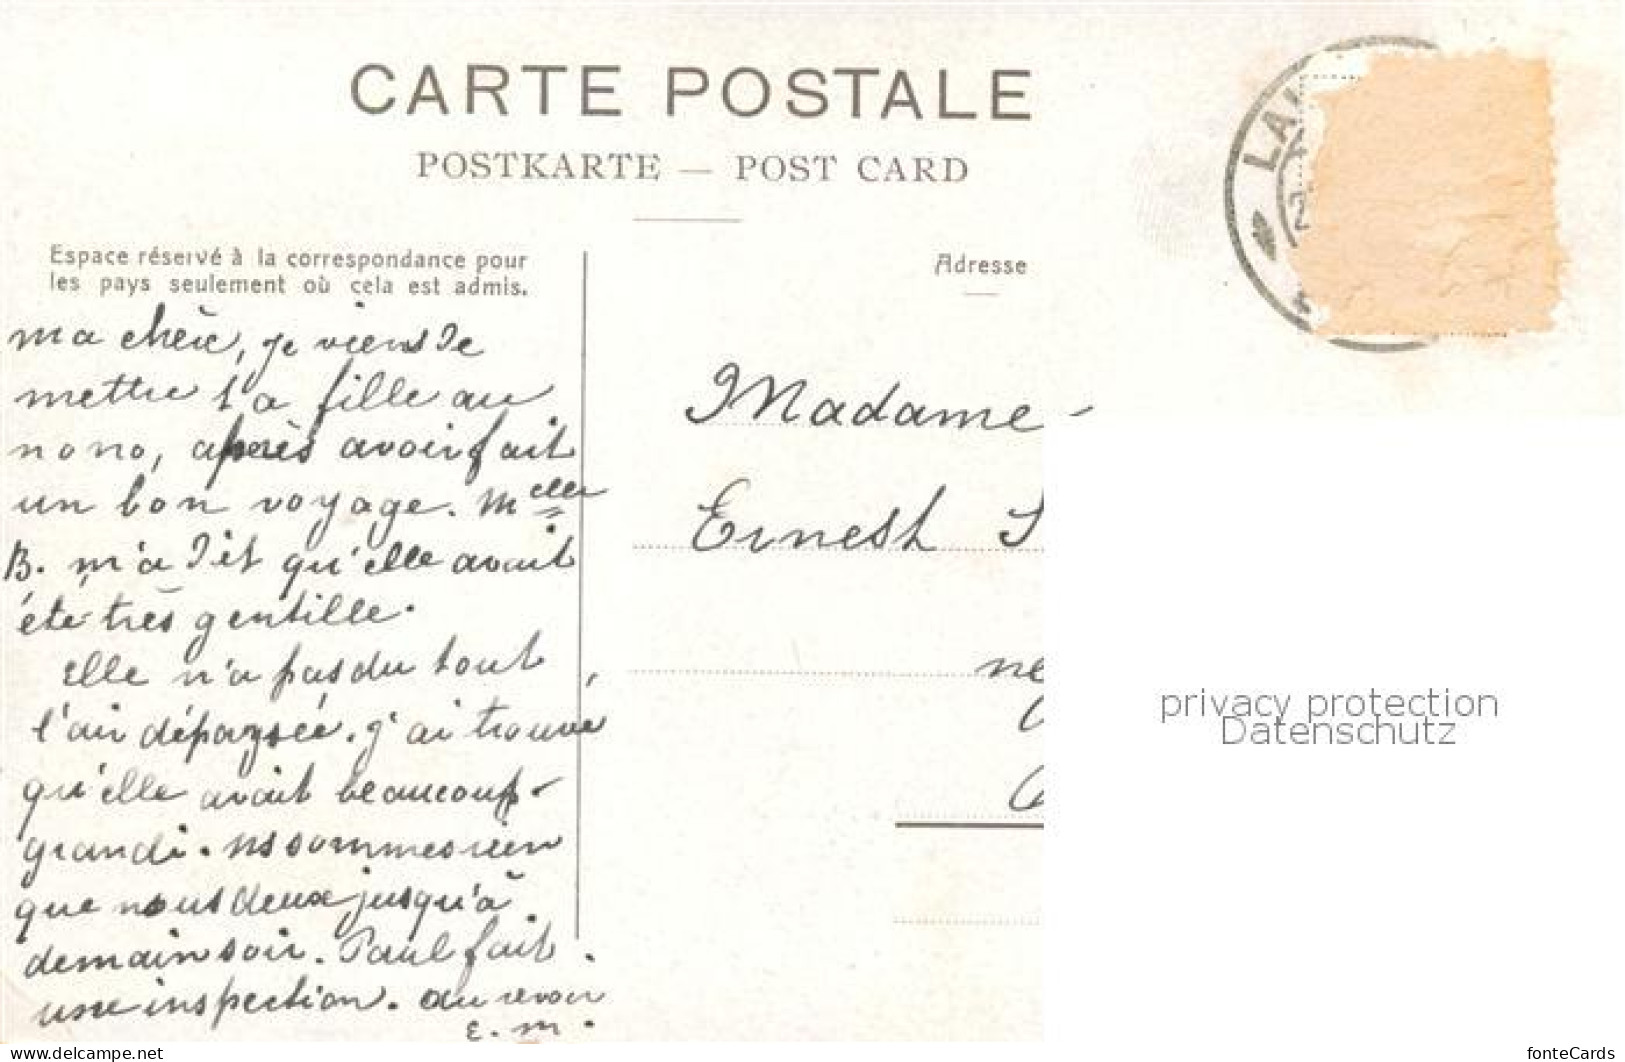 CARTE POSTALE
POSTKARTE — POST CARD
Espace réservé à la correspondance pour
les pays seulement où cela est admis.
Adresse
LA
2
ma chère, je viens de
mettre ta fille au
nono, après avoir fait
un bon voyage. Melle
B. m'a dit qu'elle avait
été très gentille.
elle n'a pas du tout
l'air dépaysée. j'ai trouvé
qu'elle avait beaucoup
grandi. ns sommes rien
que nous deux jusqu'à
demain soir. Paul fait
une inspection. au revoir
E. M.
Madame
Ernest
privacy protection
Datenschutz
https://www.delcampe.net
fonteCards